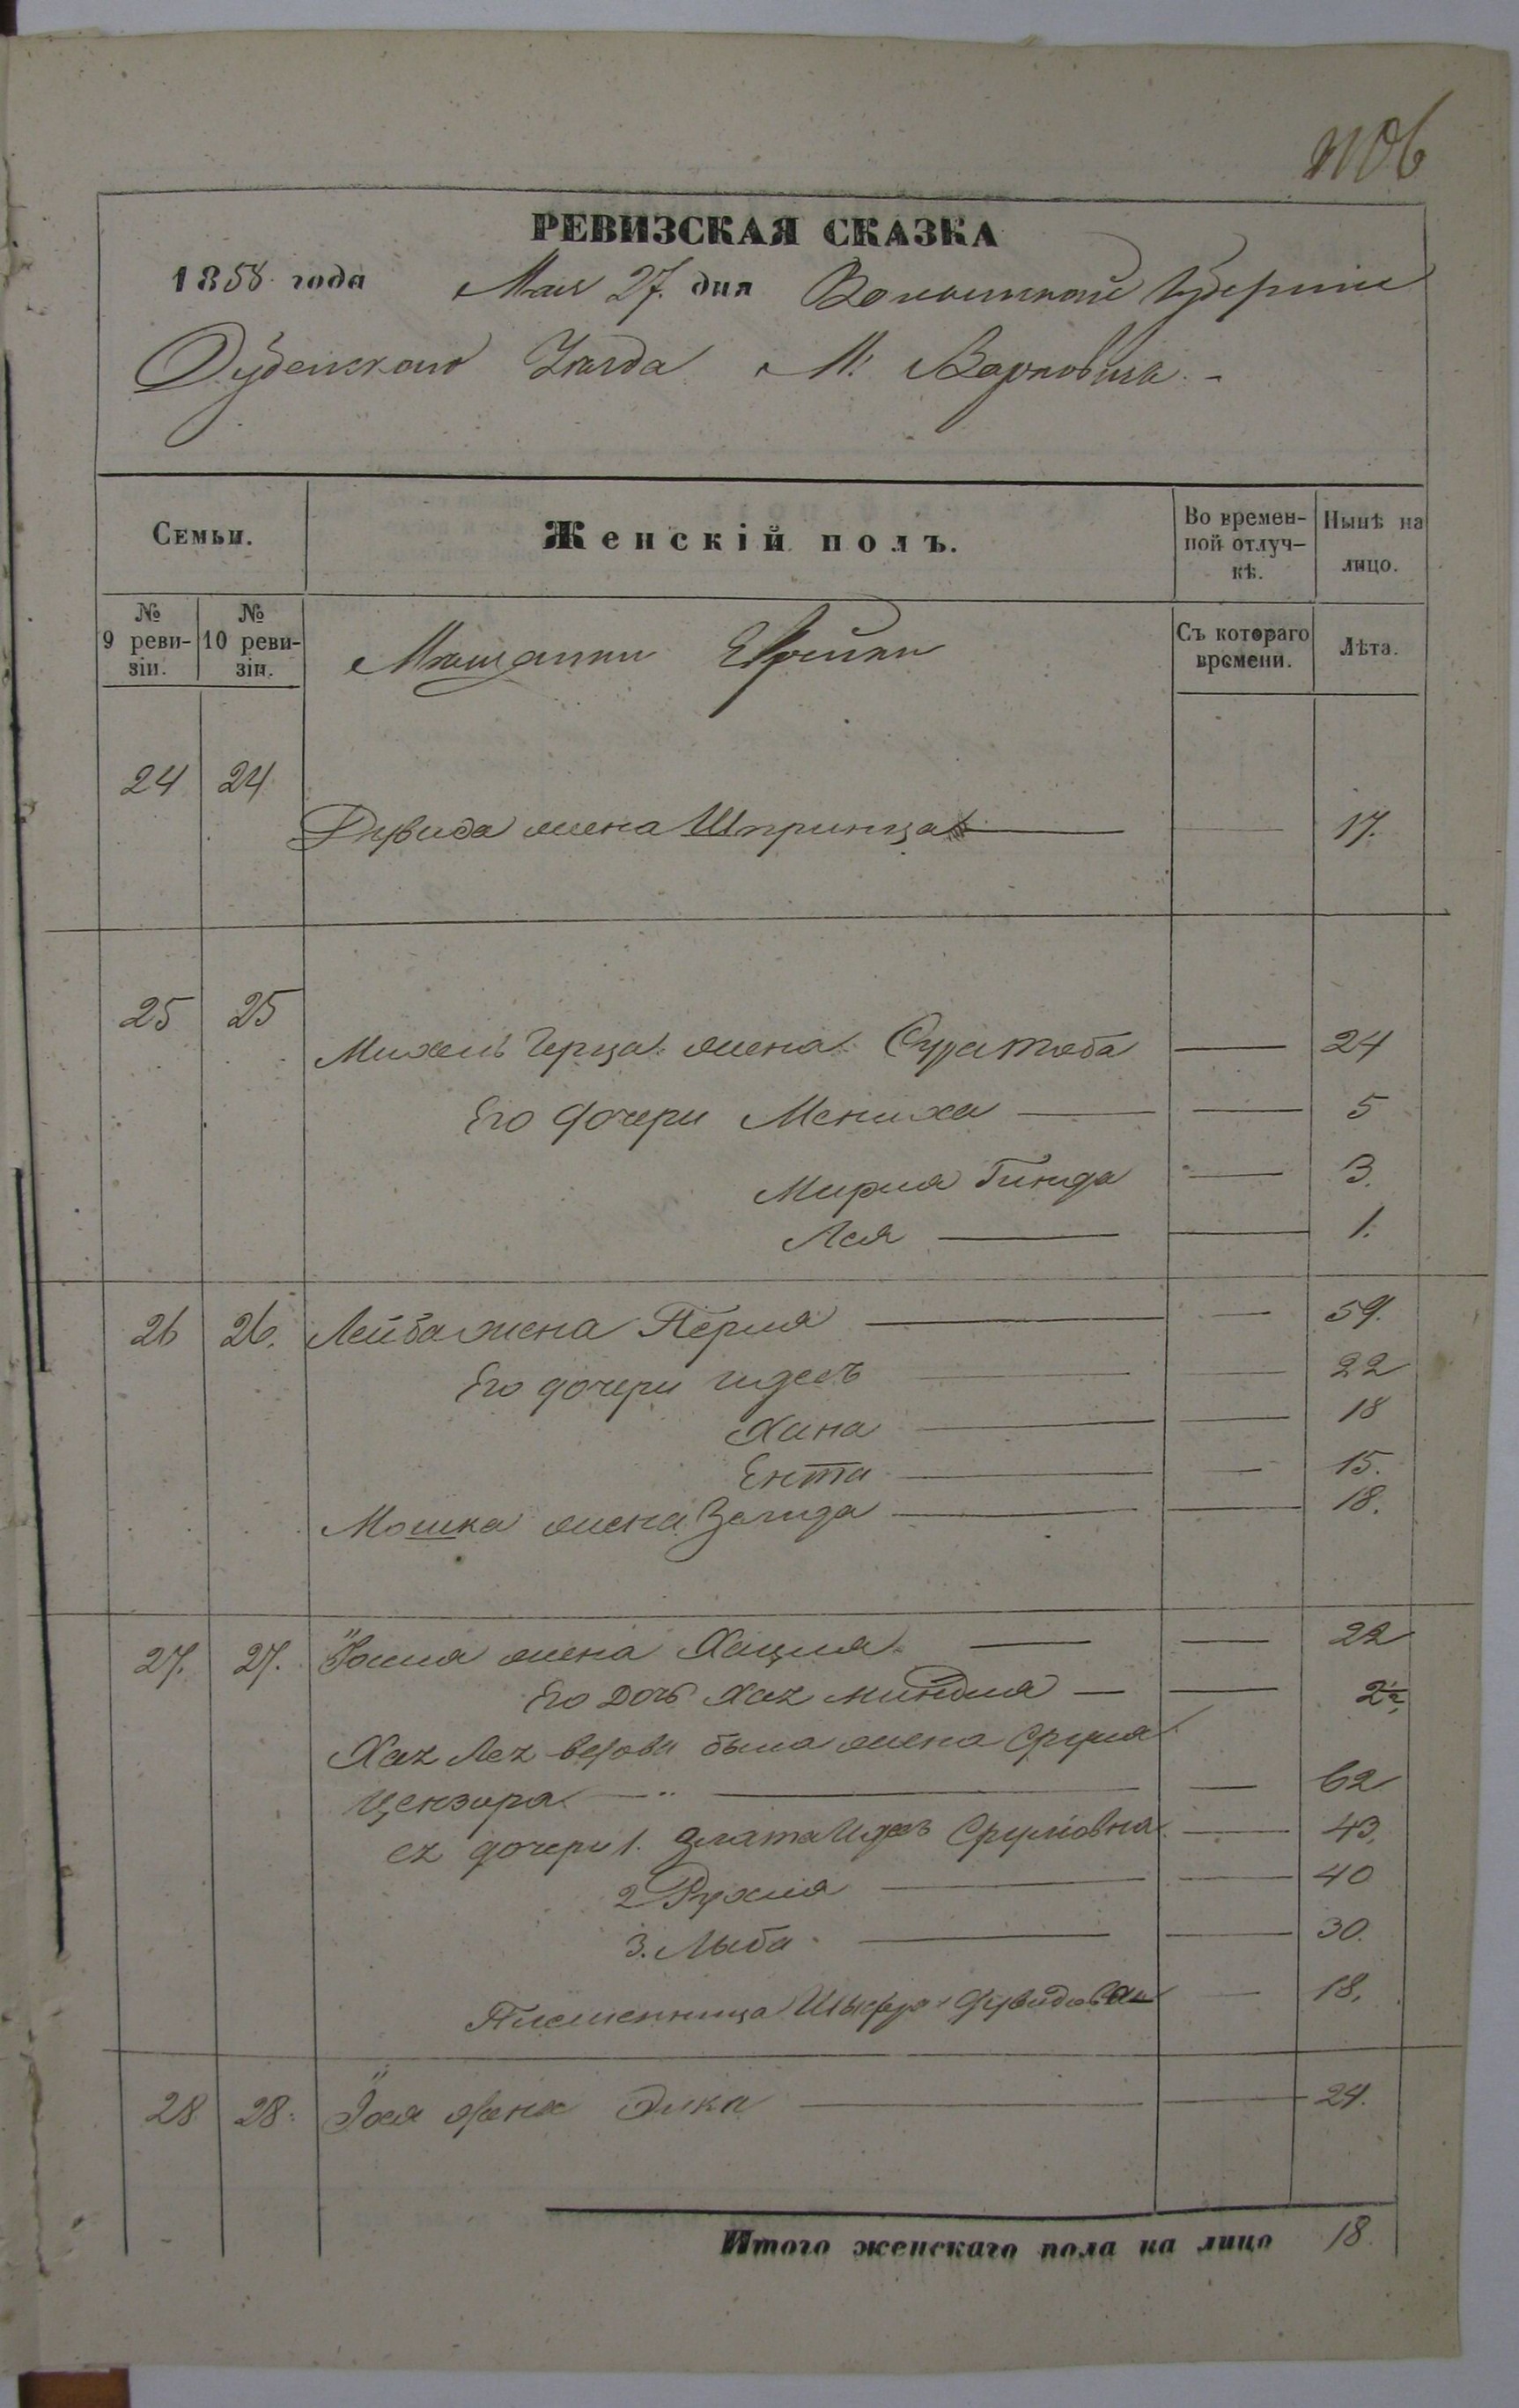 РЕВИЗСКАЯ СКАЗКА
1858 года Мая 27. дня Волынской Губернiи
Дубенского Уѣзда М. Варковича.
Семьи.
Женскій полъ.
Во времен-
ной отлуч-
кѣ.
Нынѣ на
лицо.
№
9 реви-
зіи.
№
10 реви-
зіи.
Мѣщанки Еврейки
Съ котораго
времени.
Лѣта.
24 24
Дувида жена Шпринца 17.
25 25
Михель Герца жена Сура Тоба 24
Его дочери Мениха 5
Мирля Гинда 3.
Лея 1.
26 26. Лейба жена Перля 59.
Его дочери Идесъ 22
Хана 18
Ента 15.
Мошка жена Зелида 18.
27. 27. жена Хацля 22
Его дочь Хая Миндля 2½
Хая Лея вдова была жена Сруля
Цензора 62
ея дочери 1. Злата Идесъ Срулiовна 43.
2 Рухля 40
3. Лыба 30.
Племенница Шыфра 18.
28 28. жена Элка 24.
Итого женскаго пола на лицо 18.